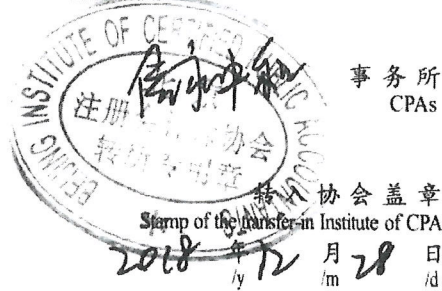 BEIJING INSTITUTE OF CERTIFIED PUBLIC ACCOUNTANTS
注册 协会
转 专用章
事务所
CPAs
转入协会盖章
Stamp of the transfer-in Institute of CPA
2018 年 12 月 28 日
/y /m /d